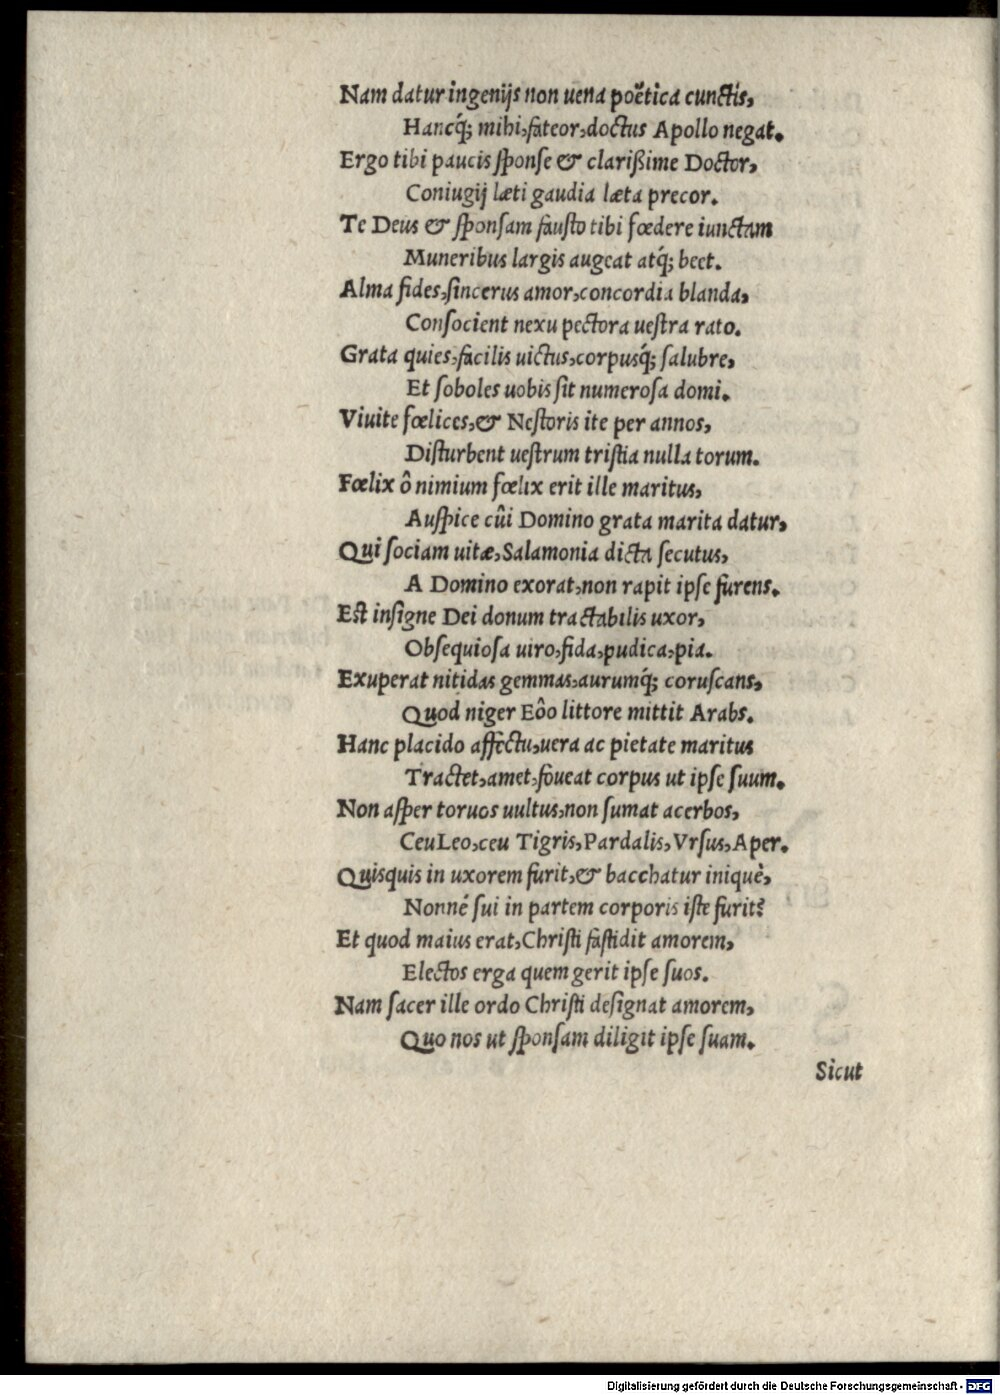 Nam datur ingenijs non uena poëtica cunctis,
Hancq́; mihi, fateor, doctus Apollo negat.
Ergo tibi paucis ſponſe & clarißime Doctor,
Coniugij læti gaudia læta precor.
Te Deus & ſponſam fauſto tibi fœdere iunctam
Muneribus largis augeat atq́; beet.
Alma fides, ſincerus amor, concordia blanda,
Conſocient nexu pectora ueſtra rato.
Grata quies, facilis uictus, corpusq́; ſalubre,
Et ſoboles uobis ſit numeroſa domi.
Viuite fœlices, & Neſtoris ite per annos,
Diſturbent ueſtrum triſtia nulla torum.
Fœlix ô nimium fœlix erit ille maritus,
Auſpice cûi Domino grata marita datur,
Qui ſociam uitæ, Salamonia dicta ſecutus,
A Domino exorat, non rapit ipſe furens.
Eſt inſigne Dei donum tractabilis uxor,
Obſequioſa uiro, fida, pudica, pia.
Exuperat nitidas gemmas, aurumq́; coruſcans,
Quod niger Eôo littore mittit Arabs.
Hanc placido affectu, uera ac pietate maritus
Tractet, amet, foueat corpus ut ipſe ſuum.
Non aſper toruos uultus, non ſumat acerbos,
Ceu Leo, ceu Tigris, Pardalis, Vrſus, Aper.
Quisquis in uxorem furit, & bacchatur iniquè,
Nonné ſui in partem corporis iſte furit?
Et quod maius erat, Chriſti faſtidit amorem,
Electos erga quem gerit ipſe ſuos.
Nam ſacer ille ordo Chriſti deſignat amorem,
Quo nos ut ſponſam diligit ipſe ſuam.
Sicut
Digitalisierung gefördert durch die Deutsche Forschungsgemeinschaft - DFG